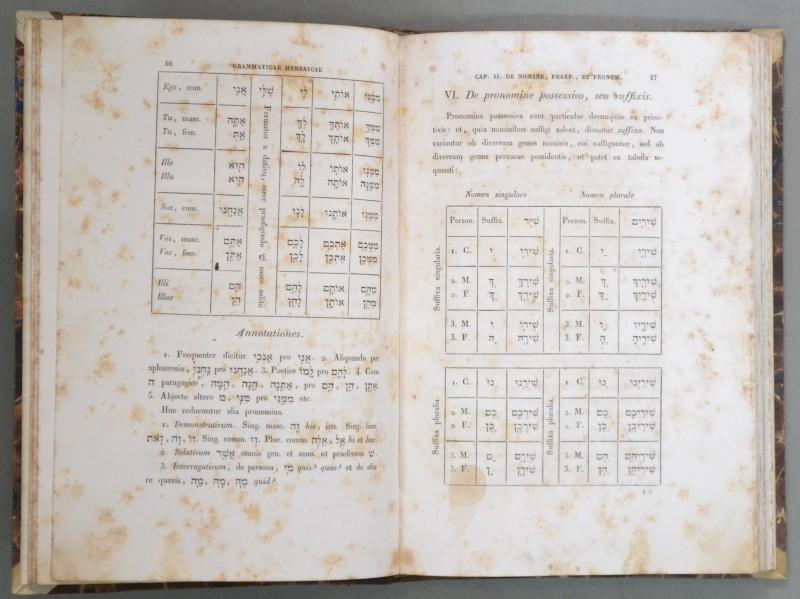 16
GRAMMATICAE HEBRAICAE
Ego, com. אֲנִי שֶׁלִּי לִי אוֹתִי מִמֶּנִּי
Tu, masc. אַתָּה לְךָ אוֹתְךָ מִמְּךָ
Tu, fem. אַתְּ לָךְ אוֹתָךְ מִמֵּךְ
Ille הוּא לוֹ אוֹתוֹ מִמֶּנּוּ
Illa הִיא לָהּ אוֹתָהּ מִמֶּנָּה
Nos, com. אֲנַחְנוּ לָנוּ אוֹתָנוּ מִמֶּנּוּ
Vos, masc. אַתֶּם לָכֶם אֶתְכֶם מִכֶּם
Vos, foem. אַתֶּן לָכֶן אֶתְכֶן מִכֶּן
Illi הֵם לָהֶם אוֹתָם מֵהֶם
Illae הֵן לָהֶן אוֹתָן מֵהֶן
Formatur a dativo, mere praefigendo שֶׁ more solito
Annotationes.
1. Frequenter dicitur אָנֹכִי pro אֲנִי. 2. Aliquando per
aphaeresin, נַחְנוּ pro אֲנַחְנוּ. 3. Poetice לָמוֹ pro לָהֶם. 4. Cum
ה paragogico, אַתֵּנָה, הֵנָּה, הֵמָּה, pro הֵם, הֵן, אַתֶּן.
5. Abjecto altero מ, מִנִּי pro מִמֶּנִּי etc.
Huc reducuntur alia pronomina.
1. Demonstrativum. Sing. masc. זֶה hic, iste. Sing. fem.
זוֹ, זֹה, זֹאת. Sing. comm. זוּ. Plur. comm. אֵלֶּה, אֵל hi et hae.
2. Relativum אֲשֶׁר omnis gen. et num. ut praefixum שׁ.
3. Interrogativum, de persona, מִי quis? quae? et de alia
re quavis, מַה, מָה, מֶה quid?
CAP. II. DE NOMINE, PRAEF., ET PRONOM.
17
VI. De pronomine possessivo, seu suffixis.
Pronomina possessiva sunt particulae desumptae ex primi-
tivis: et, quia nominibus suffigi solent, dicuntur suffixa. Non
variantur ob diversum genus nominis, cui suffiguntur, sed ob
diversum genus personae possidentis, ut patet ex tabula se-
quenti:
Nomen singulare
Nomen plurale
Suffixa singularia.
Person. Suffix. שִׁיר
1. C. ִי שִׁירִי
2. M. ְךָ שִׁירְךָ
2. F. ֵךְ שִׁירֵךְ
3. M. וֹ שִׁירוֹ
3. F. ָהּ שִׁירָהּ
Suffixa singularia.
Person. Suffix. שִׁירִים
1. C. ַי שִׁירַי
2. M. ֶיךָ שִׁירֶיךָ
2. F. ַיִךְ שִׁירַיִךְ
3. M. ָיו שִׁירָיו
3. F. ֶיהָ שִׁירֶיהָ
Suffixa pluralia.
1. C. ֵנוּ שִׁירֵנוּ
2. M. ְכֶם שִׁירְכֶם
2. F. ְכֶן שִׁירְכֶן
3. M. ָם שִׁירָם
3. F. ָן שִׁירָן
Suffixa pluralia.
1. C. ֵינוּ שִׁירֵינוּ
2. M. ֵיכֶם שִׁירֵיכֶם
2. F. ֵיכֶן שִׁירֵיכֶן
3. M. ֵיהֶם שִׁירֵיהֶם
3. F. ֵיהֶן שִׁירֵיהֶן